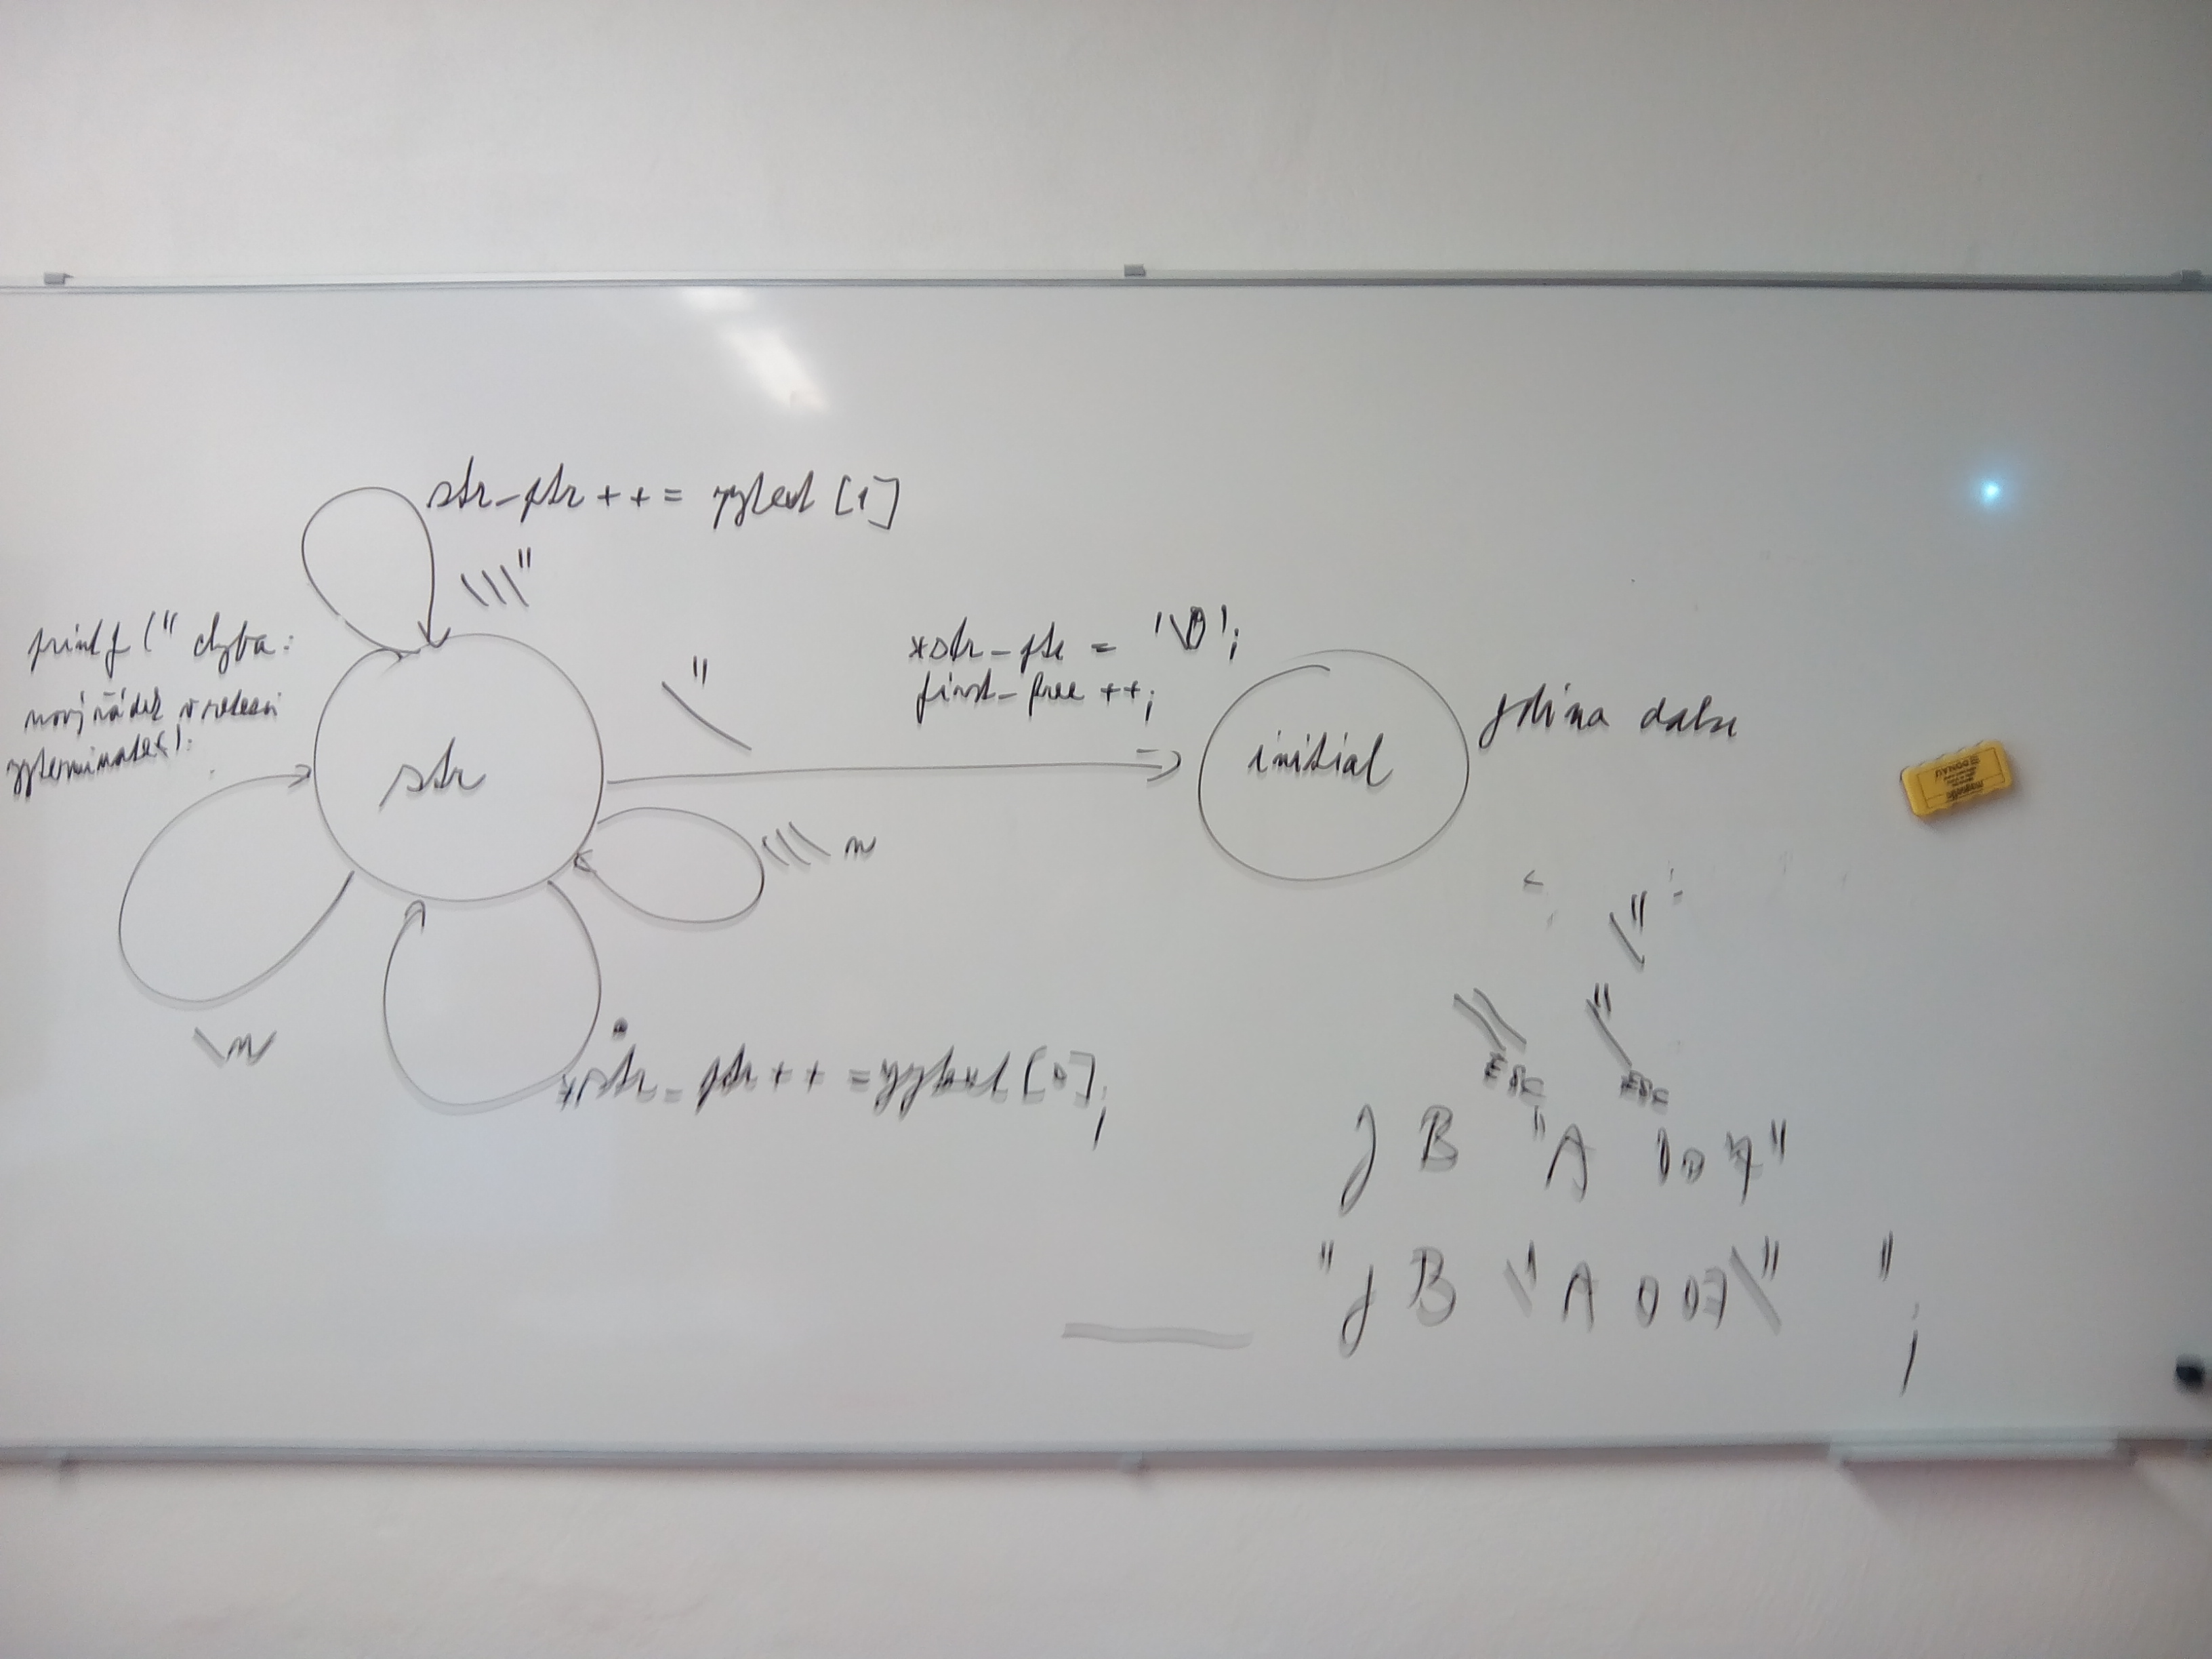 str_ptr++ = yytext [1]
\\\"
printf (" chyba:
nový řádek v řetězci
yyterminate();
\"
*str_ptr = '\0';
first_free ++;
str
initial
\\\ n
\n
.
*str_ptr++ = yytext [0];
\"
\\ \"
ESC ESC
J B "A 007"
"J B \"A 007\" ";
DONAU